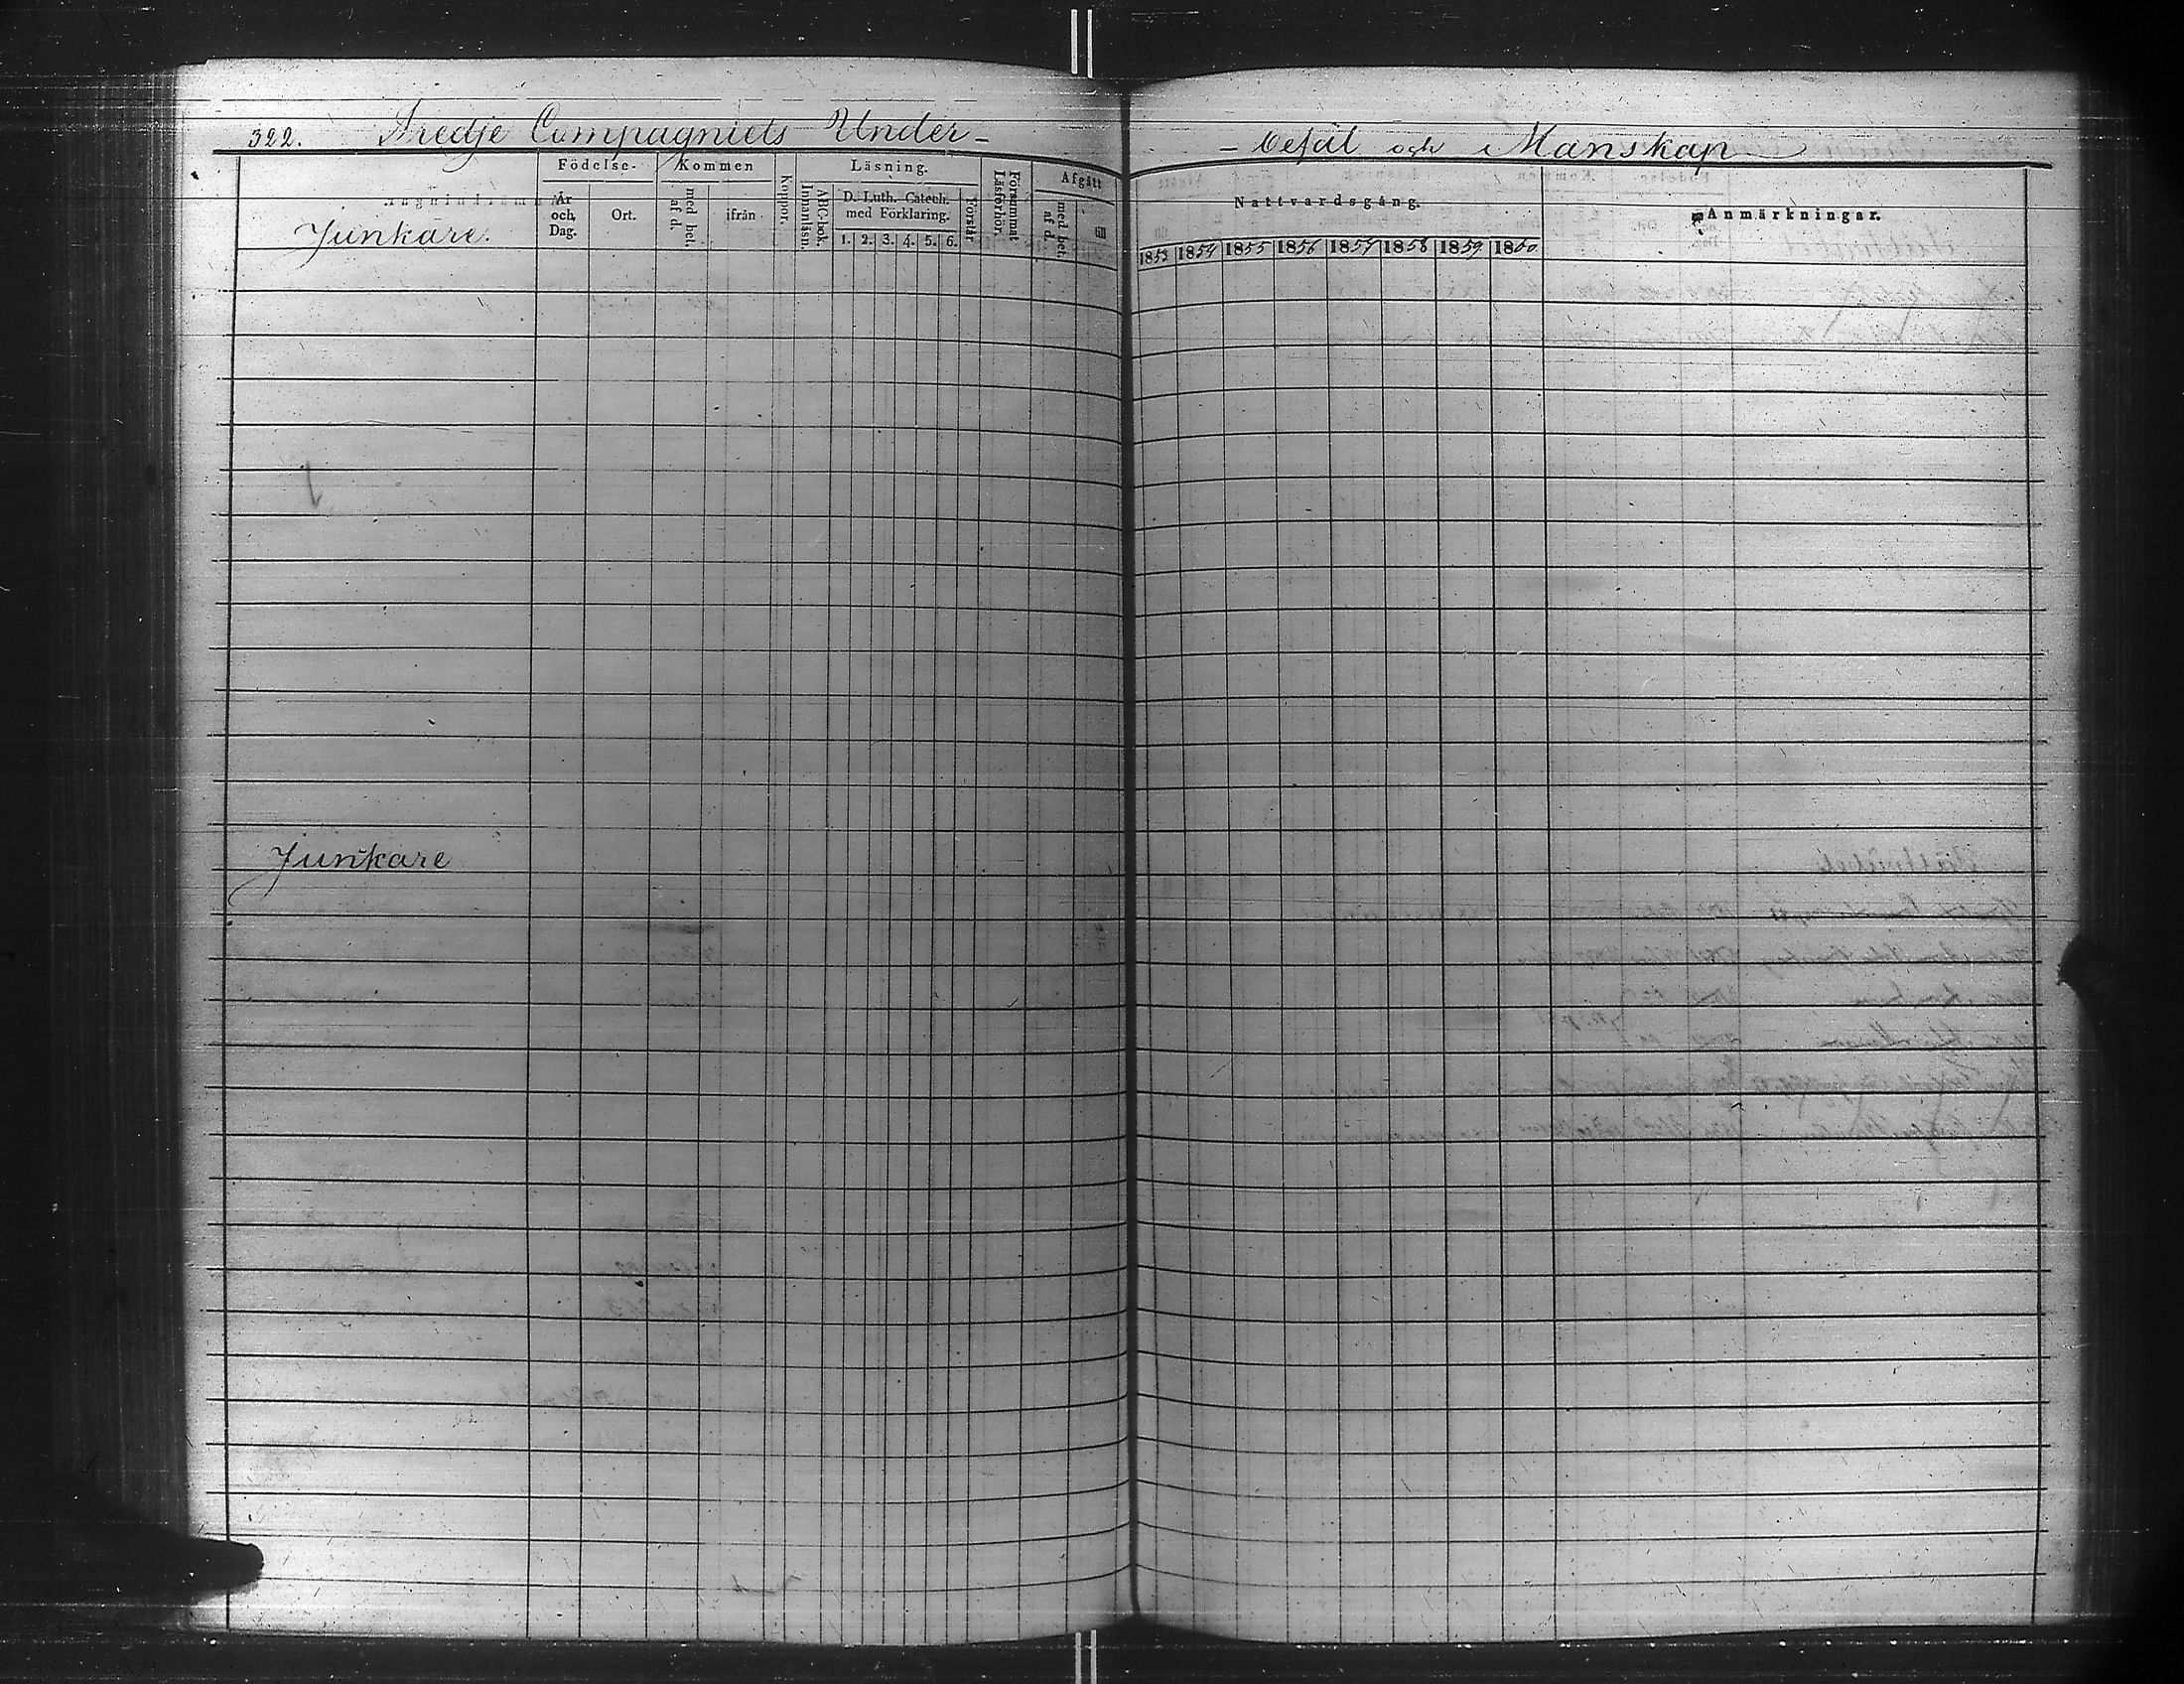 322. Tredje Compagniets Under-
- befäl och Manskap
Födelse-
Kommen
Koppor.
Läsning.
Försummat Läsförhör.
Afgått
År och Dag.
Ort.
med bet. af d.
ifrån
ABC-bok. Innanläsn.
D. Luth. Catech. med Förklaring.
1. 2. 3. 4. 5. 6.
Förstår
med bet. af d.
till
Nattvardsgång.
Anmärkningar.
1853 1854 1855 1856 1857 1858 1859 1860.
Junkare.
Junkare